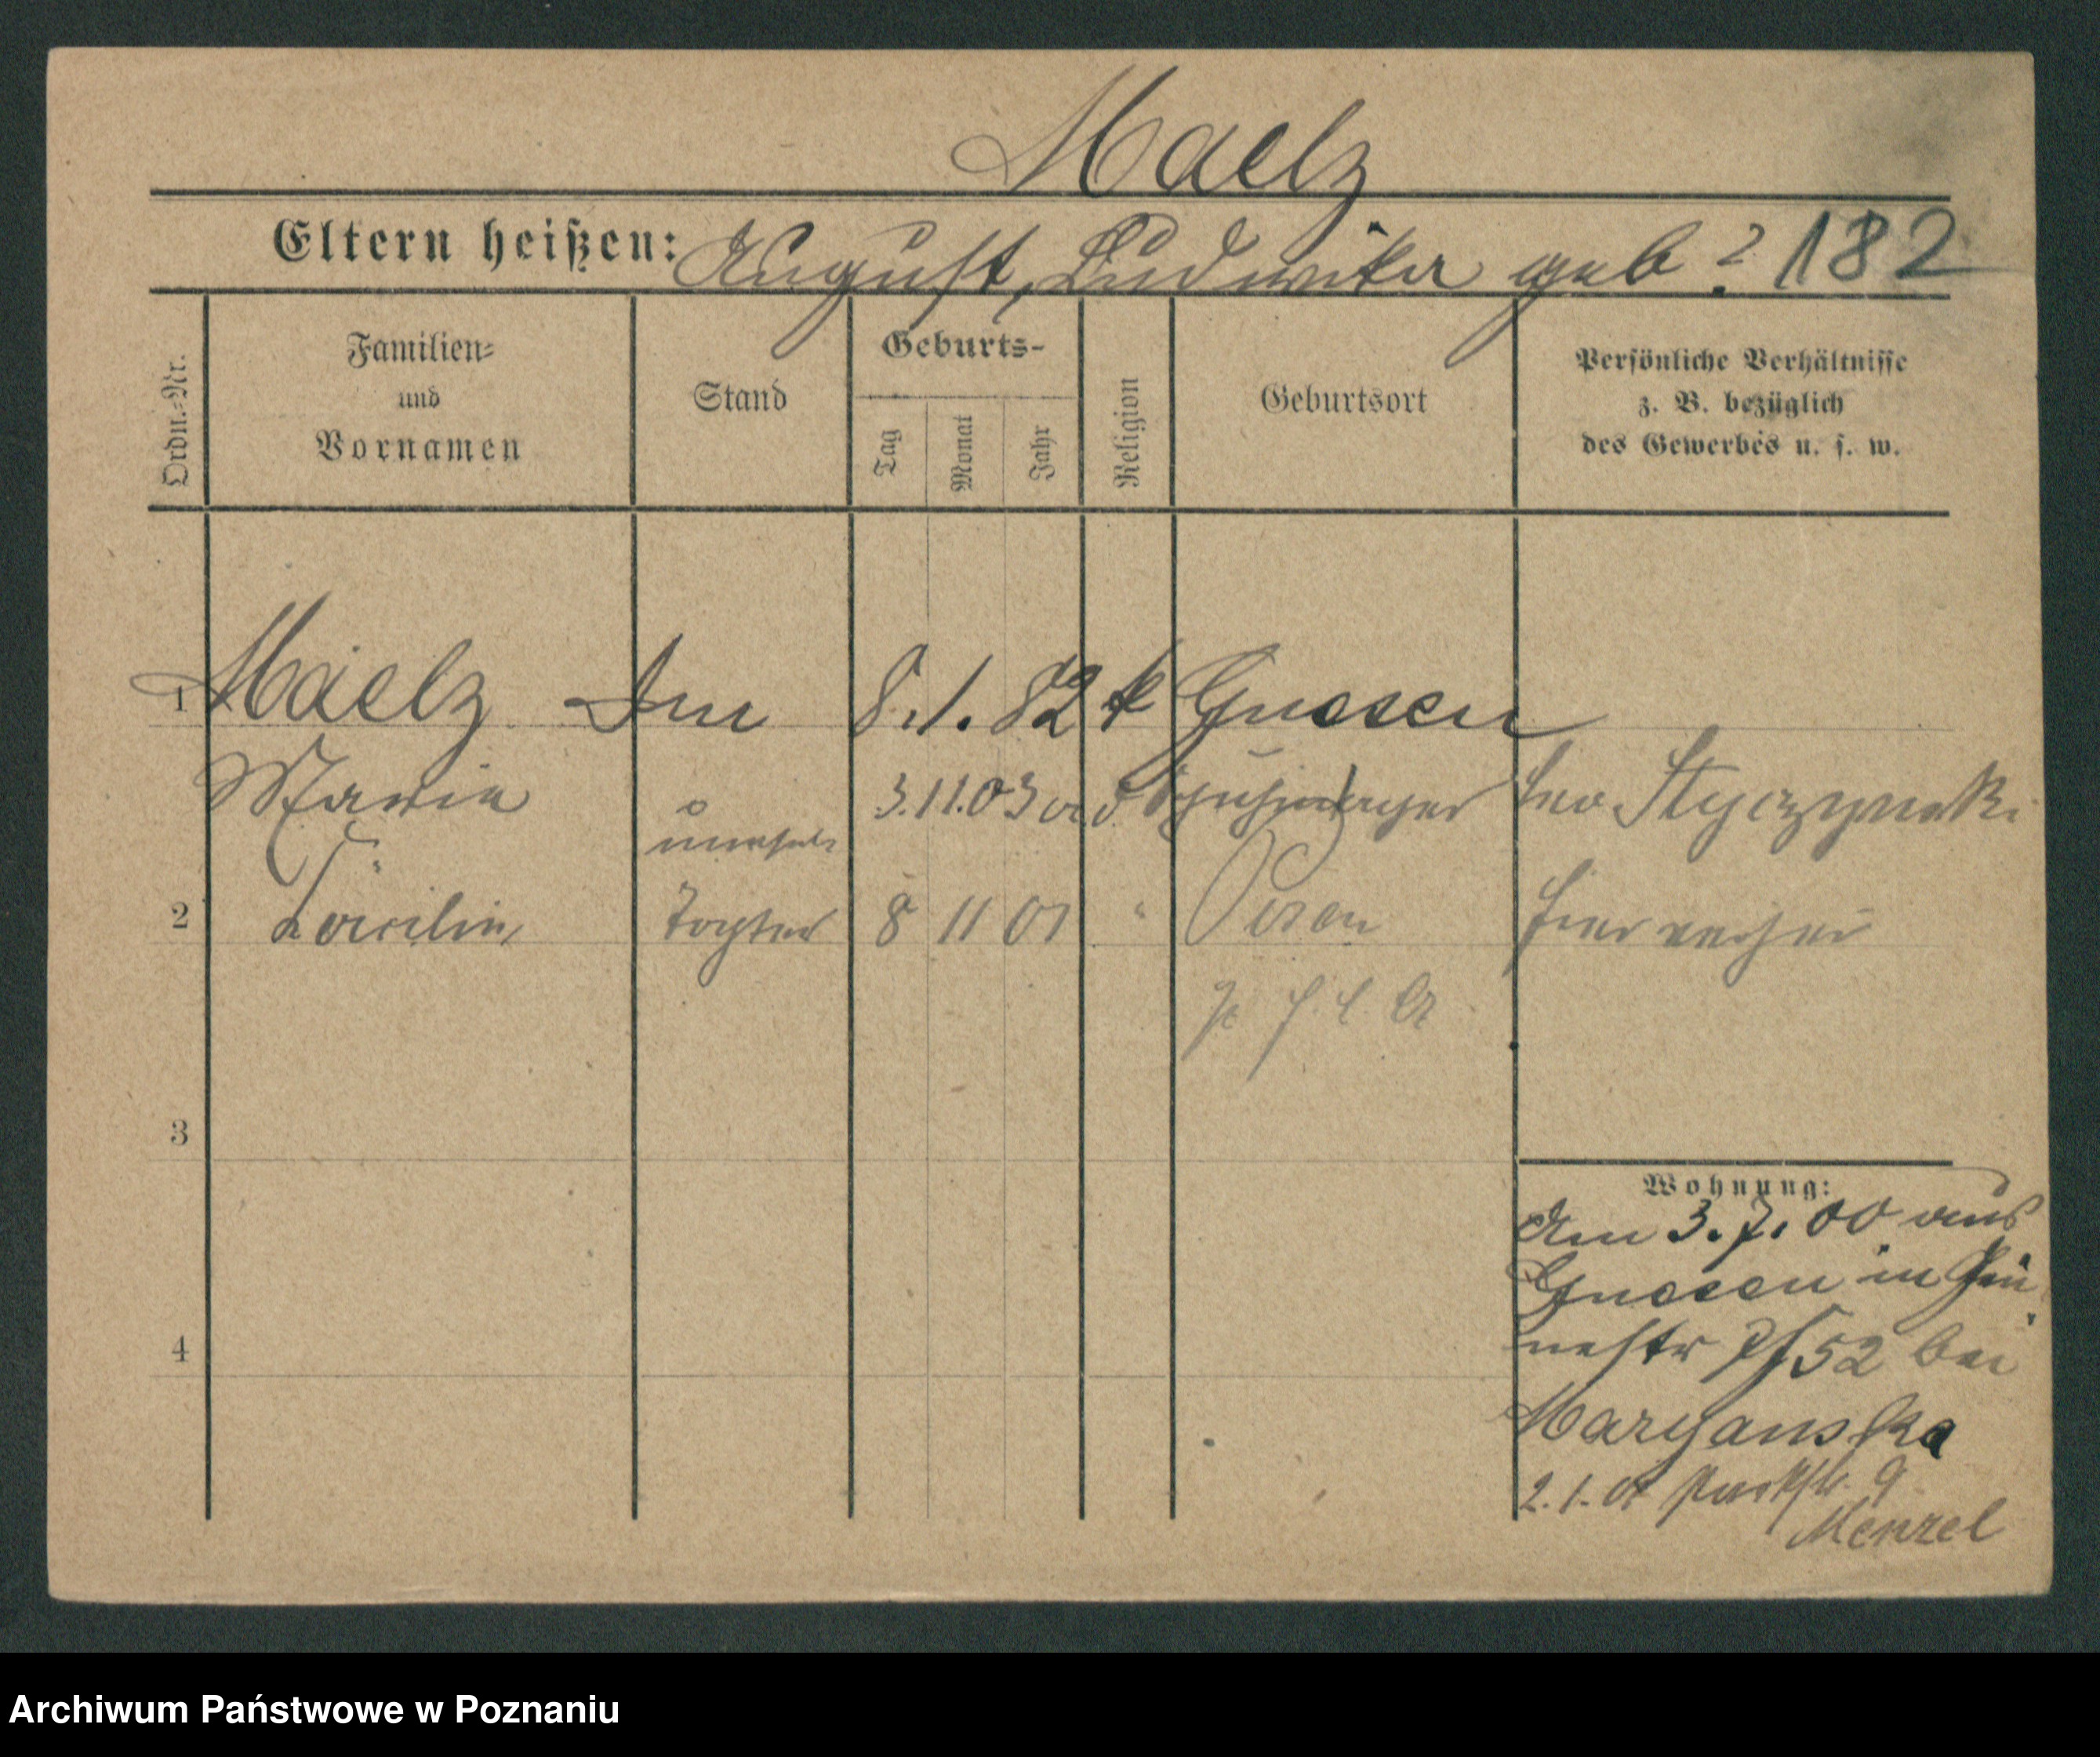 Maelz
Eltern heißen: August, Ludwika geb? 182
Ordn.-Nr.
Familien-
und
Vornamen
Stand
Geburts-
Tag
Monat
Jahr
Religion
Geburtsort
Persönliche Verhältnisse
z. B. bezüglich
des Gewerbes u. s. w.
1 Maelz 8.1.82 k Gnesen
Marie 3.11.03 Styczynski
unehel
2 Cäcilie Tochter 8 11 01 " Posen
3
4
Wohnung:
Am 3.7.00 aus
Gnesen in
52 bei
Maryanska
2.1.01 Parkstr. 9
Menzel
Archiwum Państwowe w Poznaniu